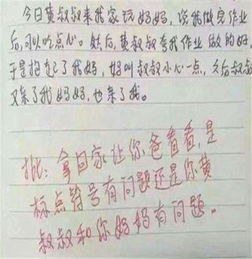 今日黄叔叔来我家玩妈妈,说我做完作业
后,可以吃点心。然后,黄叔叔夸我作业做的好
于是抱了我妈,妈叫叔叔小心一点,然后叔叔
又亲了我妈妈,也亲了我。
批:拿回家让你爸看看,是
标点符号有问题还是你黄
叔叔和你妈妈有问题。